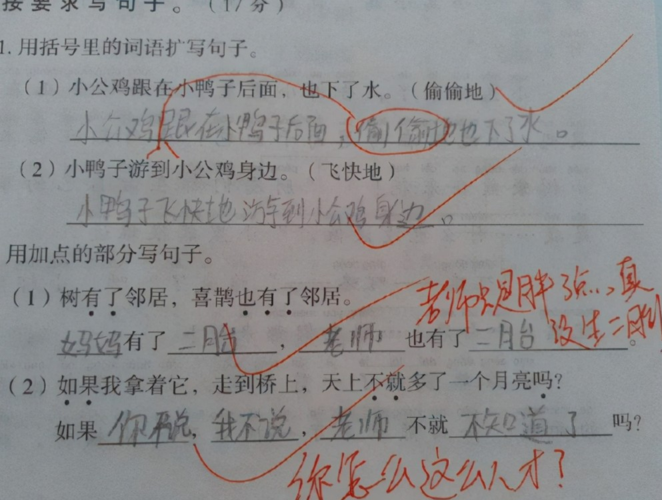 接要求写句子。（17分）
1. 用括号里的词语扩写句子。
（1）小公鸡跟在小鸭子后面，也下了水。（偷偷地）
小公鸡跟在小鸭子后面，偷偷地也下了水。
（2）小鸭子游到小公鸡身边。（飞快地）
小鸭子飞快地游到小公鸡身边。
用加点的部分写句子。
（1）树有了邻居，喜鹊也有了邻居。
老师只是胖了点，真没生二胎
妈妈有了二胎，老师也有了二胎。
（2）如果我拿着它，走到桥上，天上不就多了一个月亮吗？
如果你不说，我不说，老师不就不知道了吗？
你怎么这么人才？